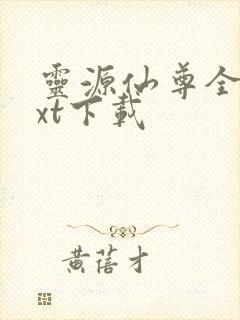 靈源仙尊全
xt下載
黄蓓才